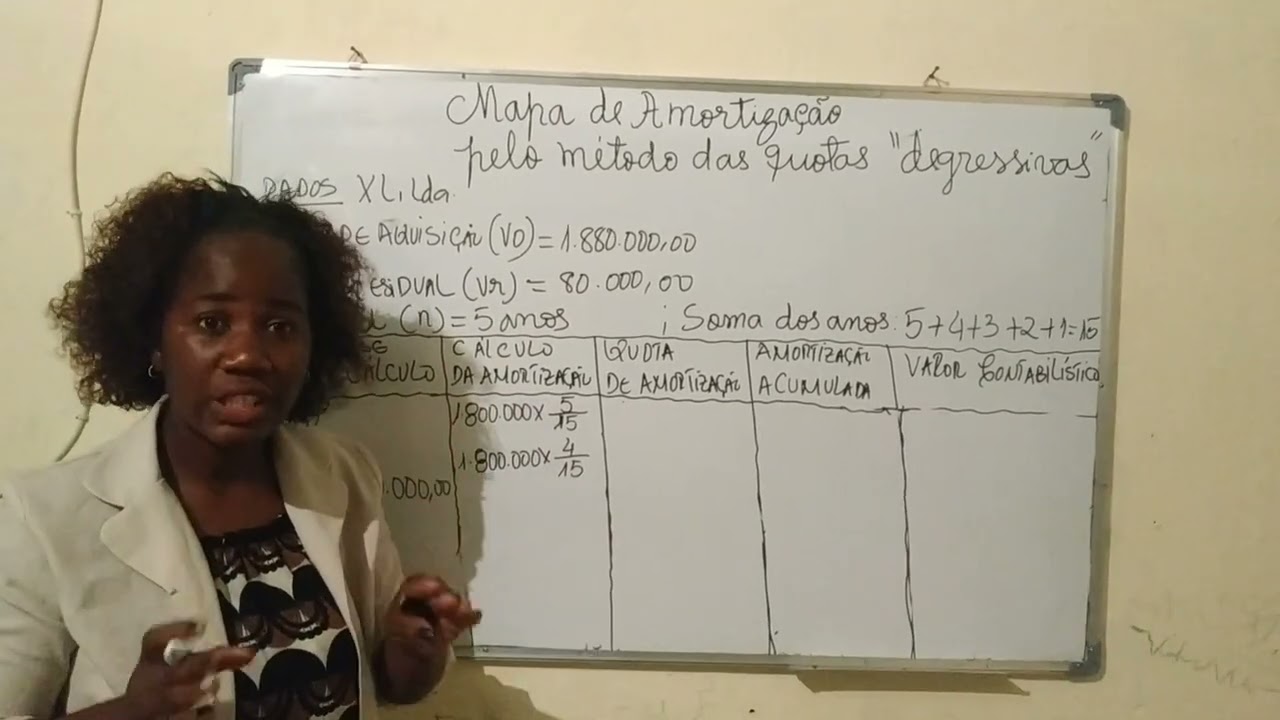 Mapa de Amortização
pelo método das quotas "degressivas"
DADOS XL, Lda.
DE AQUISIÇÃO (VO) = 1.880.000,00
RESIDUAL (Vr) = 80.000,00
(n) = 5 anos ; Soma dos anos: 5+4+3+2+1=15
CÁLCULO CÁLCULO DA AMORTIZAÇÃO QUOTA DE AMORTIZAÇÃO AMORTIZAÇÃO ACUMULADA VALOR CONTABILÍSTICO
1800.000 x 5/15
1.800.000 x 4/15
.000,00